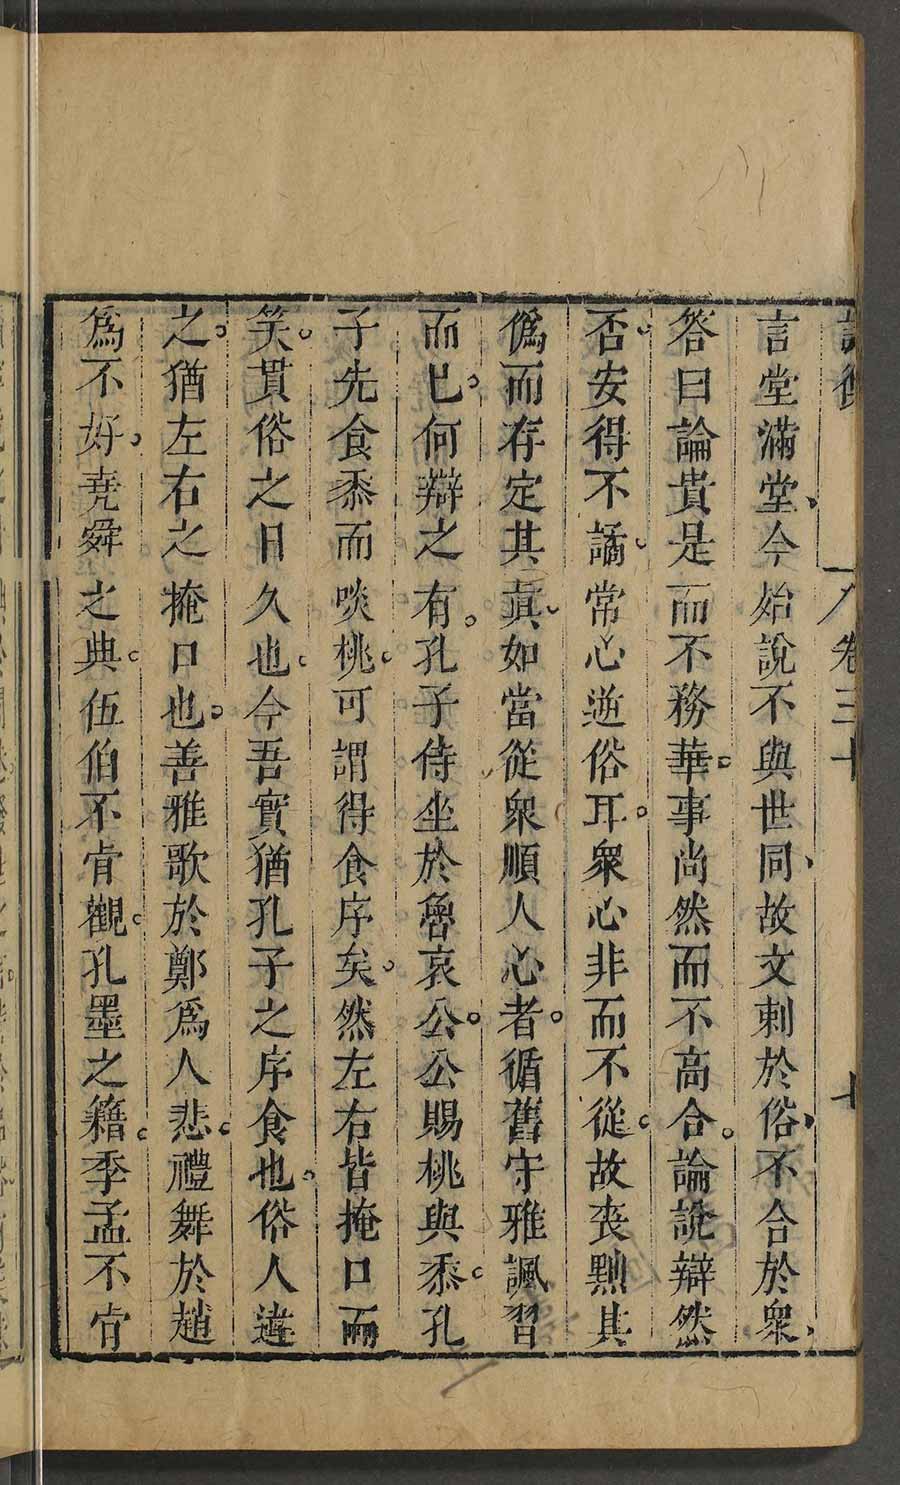 卷三十
七
言堂滿堂、今始說不與世同、故文刺於俗、不合於衆、
答曰論貴是而不務華。事尚然而不高合。論說辯然
否。安得不譎。常心逆俗耳。衆心非而不從。故喪黜其
僞而存定其眞。如當從衆順人心者。循舊守雅諷習
而已。何辯之有。孔子侍坐於魯哀公。公賜桃與黍。孔
子先食黍而啖桃。可謂得食序矣。然左右皆掩口而
笑。貫俗之日久也。今吾實猶孔子之序食也。俗人違
之。猶左右之掩口也。善雅歌於鄭爲人悲。禮舞於趙
爲不好。堯舜之典。伍伯不肯觀。孔墨之籍。季孟不肯